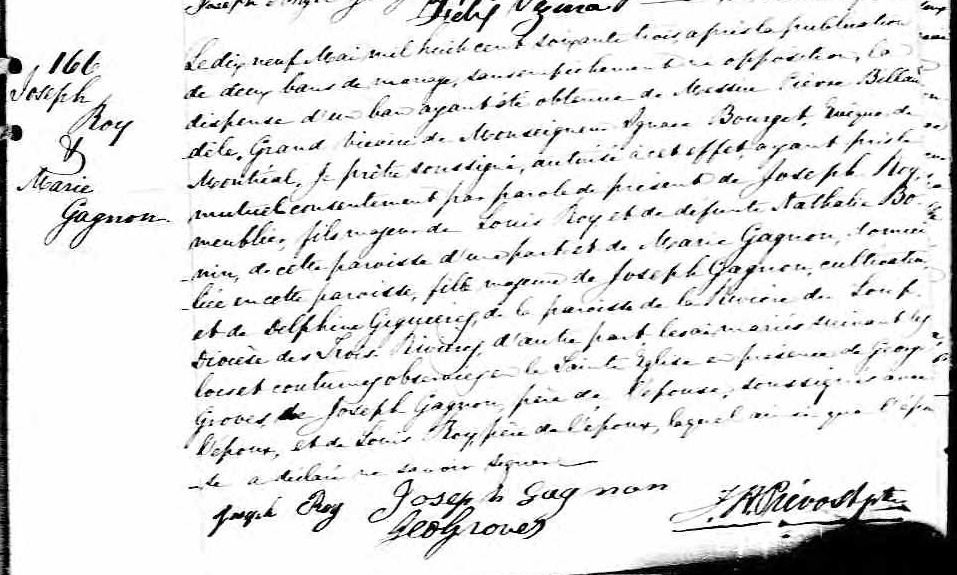 166
Joseph
Roy
&
Marie
Gagnon
Le dix neuf Mai, mil huit cent soixante trois, après la publication
de deux bans de mariage, sans empêchement ni opposition, la
dispense d'un ban ayant été obtenue de Messire Pierre Billau-
dèle, Grand Vicaire de Monseigneur Ignace Bourget, Evêque de
Montréal, Je prêtre soussigné, autorisé à cet effet, ayant pris le
mutuel consentement par parole de présent de Joseph Roy,
meublier, fils majeur de Louis Roy et de défunte Nathalie Bo-
nin, de cette paroisse d'une part et de Marie Gagnon, domici-
liée en cette paroisse, fille majeure de Joseph Gagnon, cultivateur
et de Delphine de la paroisse de la Rivière du Loup,
Diocèse des Trois Rivières, d'autre part les ai mariés suivant les
lois et coutumes observées en la Sainte Eglise en présence de George
Groves, de Joseph Gagnon, père de l'épouse, soussignés avec
l'époux, et de Louis Roy père de l'époux, lequel ainsi que l'épou-
se a déclaré ne savoir signer
Joseph Roy Joseph Gagnon
Geo Groves
Prévost ptre